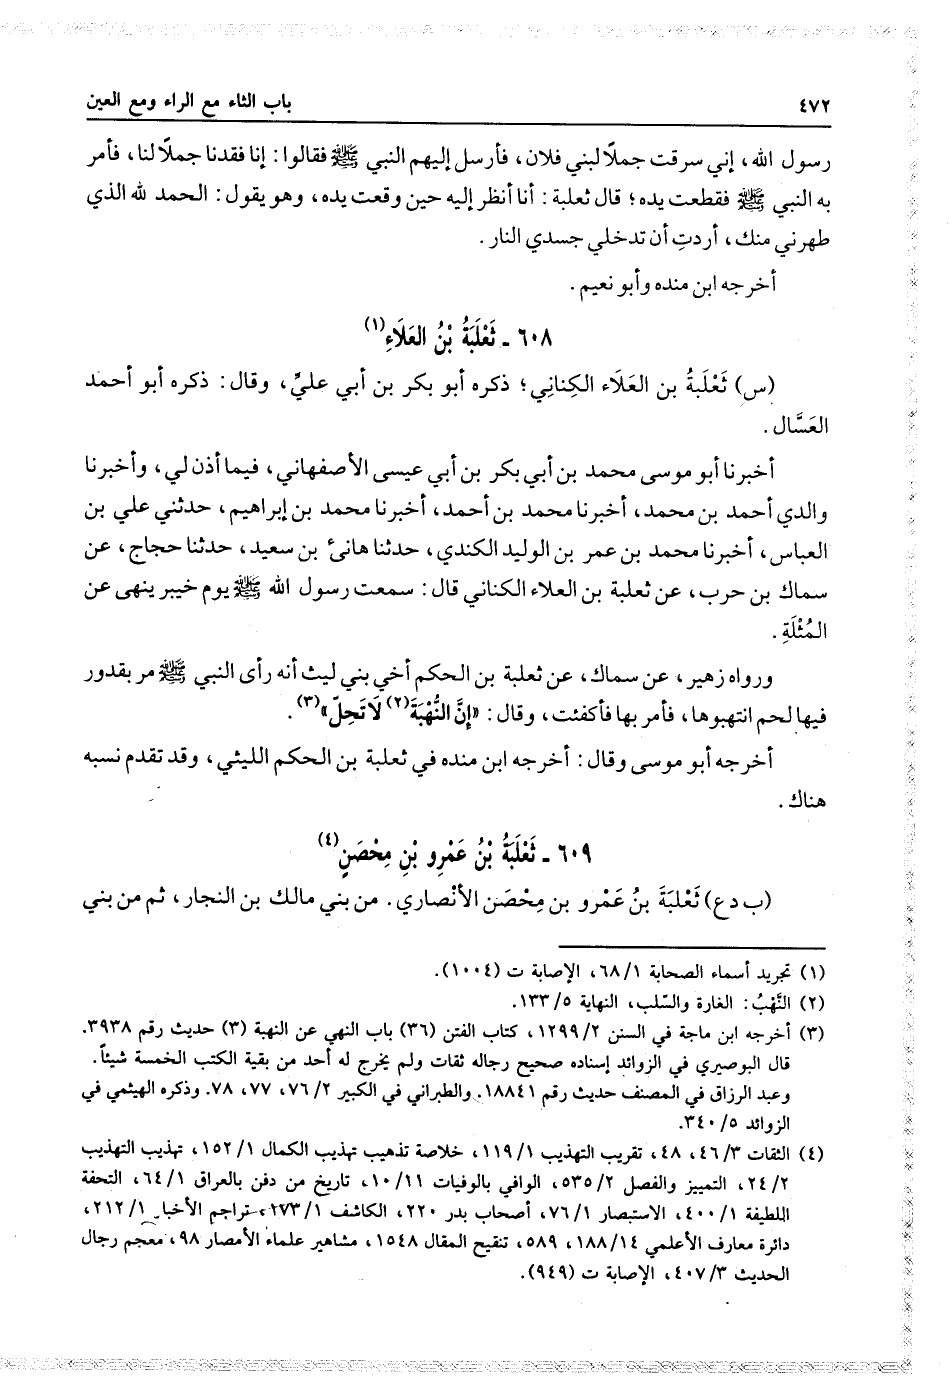 ٤٧٢ باب الثاء مع الراء ومع العين
رسول الله، إني سرقت جملاً لبني فلان، فأرسل إليهم النبي ﷺ فقالوا: إنا فقدنا جملاً لنا، فأمر
به النبي ﷺ فقطعت يده؛ قال ثعلبة: أنا أنظر إليه حين وقعت يده، وهو يقول: الحمد لله الذي
طهرني منك، أردتِ أن تدخلي جسدي النار.
أخرجه ابن منده وأبو نعيم.
٦٠٨ - ثَعْلَبَةُ بْنُ العَلَاءِ(١)
(س) ثَعْلَبَةُ بن العَلَاء الكِنانِي؛ ذكره أبو بكر بن أبي عليّ، وقال: ذكره أبو أحمد
العَسَّال.
أخبرنا أبو موسى محمد بن أبي بكر بن أبي عيسى الأصفهاني، فيما أذن لي، وأخبرنا
والدي أحمد بن محمد، أخبرنا محمد بن أحمد، أخبرنا محمد بن إبراهيم، حدثني علي بن
العباس، أخبرنا محمد بن عمر بن الوليد الكندي، حدثنا هانئ بن سعيد، حدثنا حجاج، عن
سماك بن حرب، عن ثعلبة بن العلاء الكناني قال: سمعت رسول الله ﷺ يوم خيبر ينهى عن
المُثْلَةِ.
ورواه زهير، عن سماك، عن ثعلبة بن الحكم أخي بني ليث أنه رأى النبي ﷺ مر بقدور
فيها لحم انتهبوها، فأمر بها فأكفئت، وقال: «إِنَّ النُّهْبَةَ(٢) لَا تَحِلّ»(٣).
أخرجه أبو موسى وقال: أخرجه ابن منده في ثعلبة بن الحكم الليثي، وقد تقدم نسبه
هناك.
٦٠٩ - ثَعْلَبَةُ بْنُ عَمْرِو بْنِ مِحْصَنٍ(٤)
(ب د ع) ثَعْلبَةَ بنُ عَمْرو بن مِحْصَن الأنْصاري. من بني مالك بن النجار، ثم من بني
(١) تجريد أسماء الصحابة ٦٨/١، الإصابة ت (١٠٠٤).
(٢) النَّهْبُ: الغارة والسّلب، النهاية ١٣٣/٥.
(٣) أخرجه ابن ماجة في السنن ١٢٩٩/٢، كتاب الفتن (٣٦) باب النهي عن النهبة (٣) حديث رقم ٣٩٣٨.
قال البوصيري في الزوائد إسناده صحيح رجاله ثقات ولم يخرج له أحد من بقية الكتب الخمسة شيئاً.
وعبد الرزاق في المصنف حديث رقم ١٨٨٤١. والطبراني في الكبير ٢/ ٧٦، ٧٧، ٧٨. وذكره الهيثمي في
الزوائد ٣٤٠/٥.
(٤) الثقات ٤٦/٣، ٤٨، تقريب التهذيب ١١٩/١، خلاصة تذهيب تهذيب الكمال ١٥٢/١، تهذيب التهذيب
٢٤/٢، التمييز والفصل ٥٣٥/٢، الوافي بالوفيات ١٠/١١، تاريخ من دفن بالعراق ٦٤/١، التحفة
اللطيفة ٤٠٠/١، الاستبصار ٧٦/١، أصحاب بدر ٢٢٠، الكاشف ١٧٣/١، تراجم الأخبار ٢١٢/١،
دائرة معارف الأعلمي ١٨٨/١٤، ٥٨٩، تنقيح المقال ١٥٤٨، مشاهير علماء الأمصار ٩٨، معجم رجال
الحديث ٤٠٧/٣، الإصابة ت (٩٤٩).